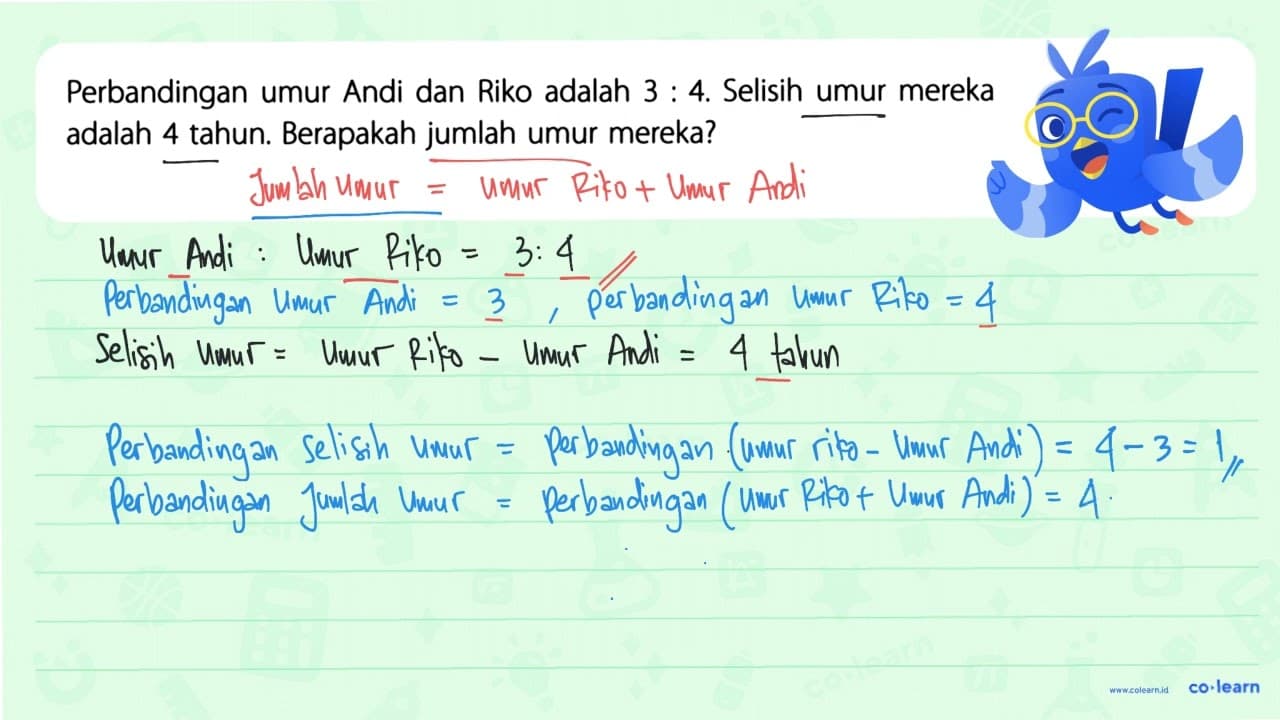 Perbandingan umur Andi dan Riko adalah 3 : 4. Selisih umur mereka
adalah 4 tahun. Berapakah jumlah umur mereka?
Jumlah Umur = umur Riko + Umur Andi
Umur Andi : Umur Riko = 3 : 4
Perbandingan Umur Andi = 3 , perbandingan umur Riko = 4
Selisih umur = Umur Riko - Umur Andi = 4 tahun
Perbandingan selisih umur = perbandingan (umur riko - Umur Andi) = 4 - 3 = 1
Perbandingan Jumlah Umur = perbandingan (umur Riko + Umur Andi) = 4
www.colearn.id co·learn